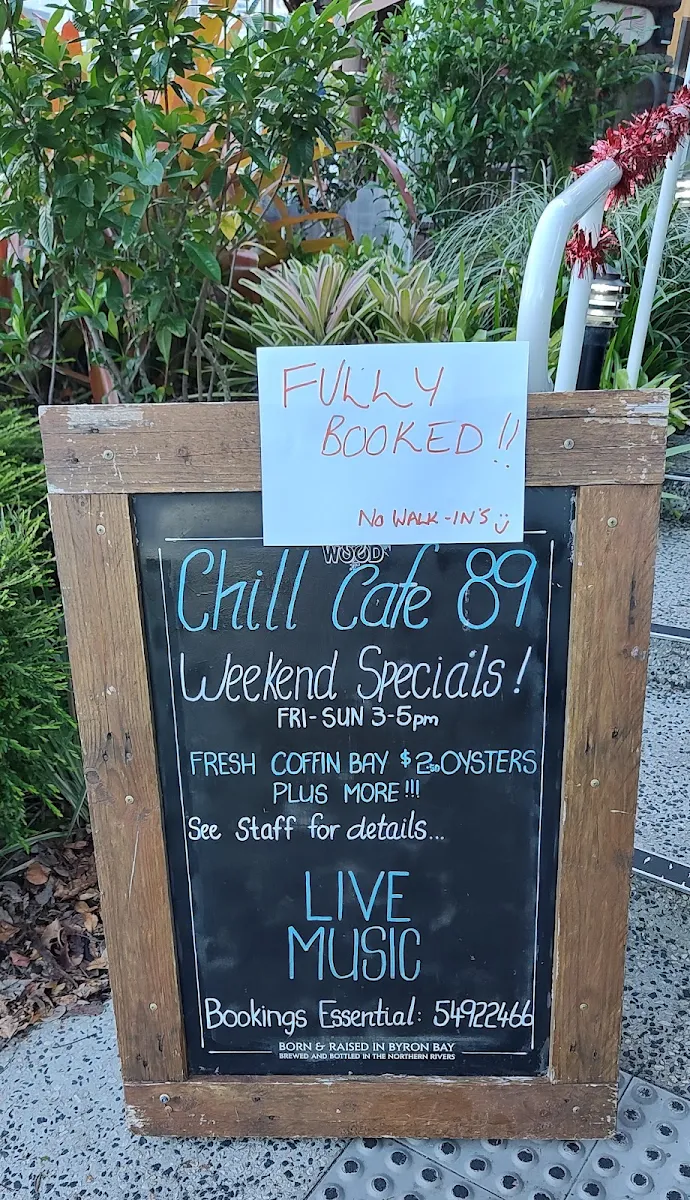 FULLY
BOOKED!!
NO WALK-IN'S
WOOD
Chill Cafe 89
Weekend Specials!
FRI-SUN 3-5pm
FRESH COFFIN BAY $2.50 OYSTERS
PLUS MORE!!!
See Staff for details...
LIVE
MUSIC
Bookings Essential: 54922466
BORN & RAISED IN BYRON BAY
BREWED AND BOTTLED IN THE NORTHERN RIVERS